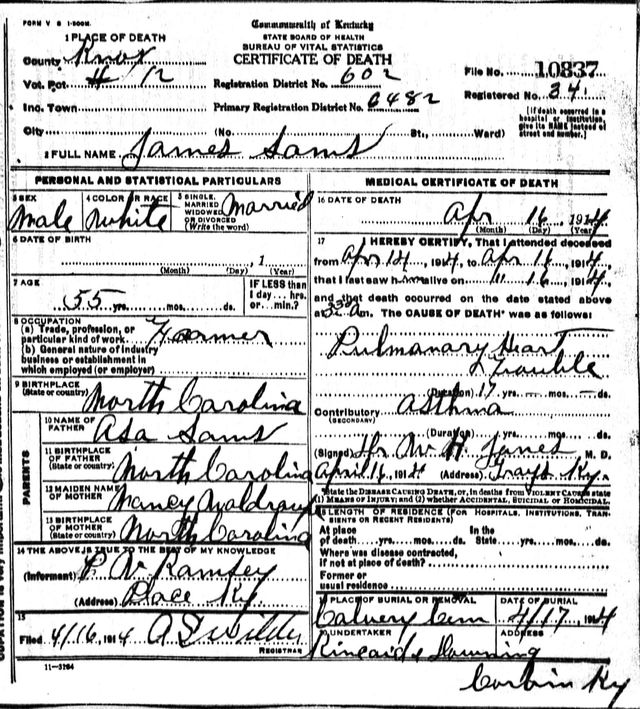 FORM V S 1-500M.
Commonwealth of Kentucky
STATE BOARD OF HEALTH
BUREAU OF VITAL STATISTICS
CERTIFICATE OF DEATH
1 PLACE OF DEATH
County Knox
Vot. Pct # 12
Inc. Town
City (No. St., Ward)
Registration District No. 602
Primary Registration District No. 6482
File No. 10837
Registered No. 24
[If death occurred in a hospital or institution, give its NAME instead of street and number.]
2 FULL NAME James Sams
PERSONAL AND STATISTICAL PARTICULARS
3 SEX Male
4 COLOR OR RACE White
5 SINGLE, MARRIED WIDOWED OR DIVORCED (Write the word) Married
6 DATE OF BIRTH
, 1
(Month) (Day) (Year)
7 AGE
55 yrs. mos. ds.
IF LESS than 1 day... hrs. or... min.?
8 OCCUPATION
(a) Trade, profession, or particular kind of work Farmer
(b) General nature of industry
business or establishment in
which employed (or employer)
9 BIRTHPLACE
(State or country) North Carolina
PARENTS
10 NAME OF FATHER Asa Sams
11 BIRTHPLACE OF FATHER (State or country) North Carolina
12 MAIDEN NAME OF MOTHER Nancy
13 BIRTHPLACE OF MOTHER (State or country) North Carolina
14 THE ABOVE IS TRUE TO THE BEST OF MY KNOWLEDGE
(Informant) Ramsey
(Address) Place Ky.
15
Filed 4/16, 1914
REGISTRAR
11-3184
MEDICAL CERTIFICATE OF DEATH
16 DATE OF DEATH
Apr 16 1914
(Month) (Day) (Year)
17 I HEREBY CERTIFY, That I attended deceased
from Apr 14, 1914, to Apr 16, 1914
that I last saw him alive on " 16, 1914
and that death occurred on the date stated above
at 5 30 Am. The CAUSE OF DEATH* was as follows:
Pulmanary Hart
Trouble
(Duration) 17 yrs. mos. ds.
Contributory Asthma
(SECONDARY)
(Duration) yrs. mos. ds.
(Signed) Dr W H Jones M. D.
April 16, 1914 (Address) Grays Ky.
*State the DISEASE CAUSING DEATH, or, in deaths from VIOLENT CAUSES state
(1) MEANS OF INJURY; and (2) whether ACCIDENTAL, SUICIDAL or HOMICIDAL
18 LENGTH OF RESIDENCE (FOR HOSPITALS, INSTITUTIONS, TRANSIENTS OR RECENT RESIDENTS)
At place In the
of death yrs. mos. ds. State yrs. mos. ds.
Where was disease contracted,
if not at place of death?
Former or
usual residence
19 PLACE OF BURIAL OR REMOVAL
Calvery Cem
DATE OF BURIAL
4/17, 1914
20 UNDERTAKER
Kincaid &
ADDRESS
Corbin Ky